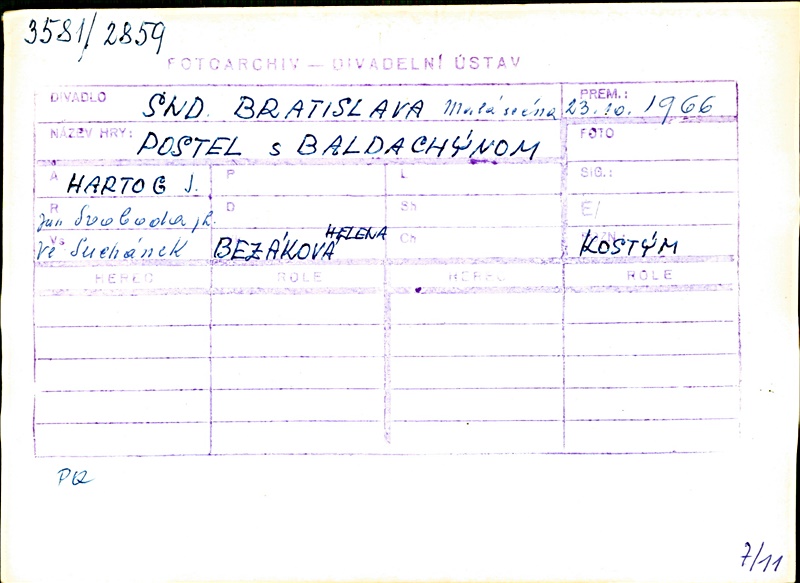 3581/2859
FOTOARCHIV — DIVADELNÍ ÚSTAV
DIVADLO SND. BRATISLAVA Malá scéna PREM.: 23.10. 1966
NÁZEV HRY: POSTEL s BALDACHÝNOM FOTO
A HARTOG J. P L SIG.:
R Jan Svoboda jr. D Sh E/
Vs Vl Suchánek BEZÁKOVÁ HELENA Ch KOSTÝM
HEREC ROLE HEREC ROLE
PQ
7/11